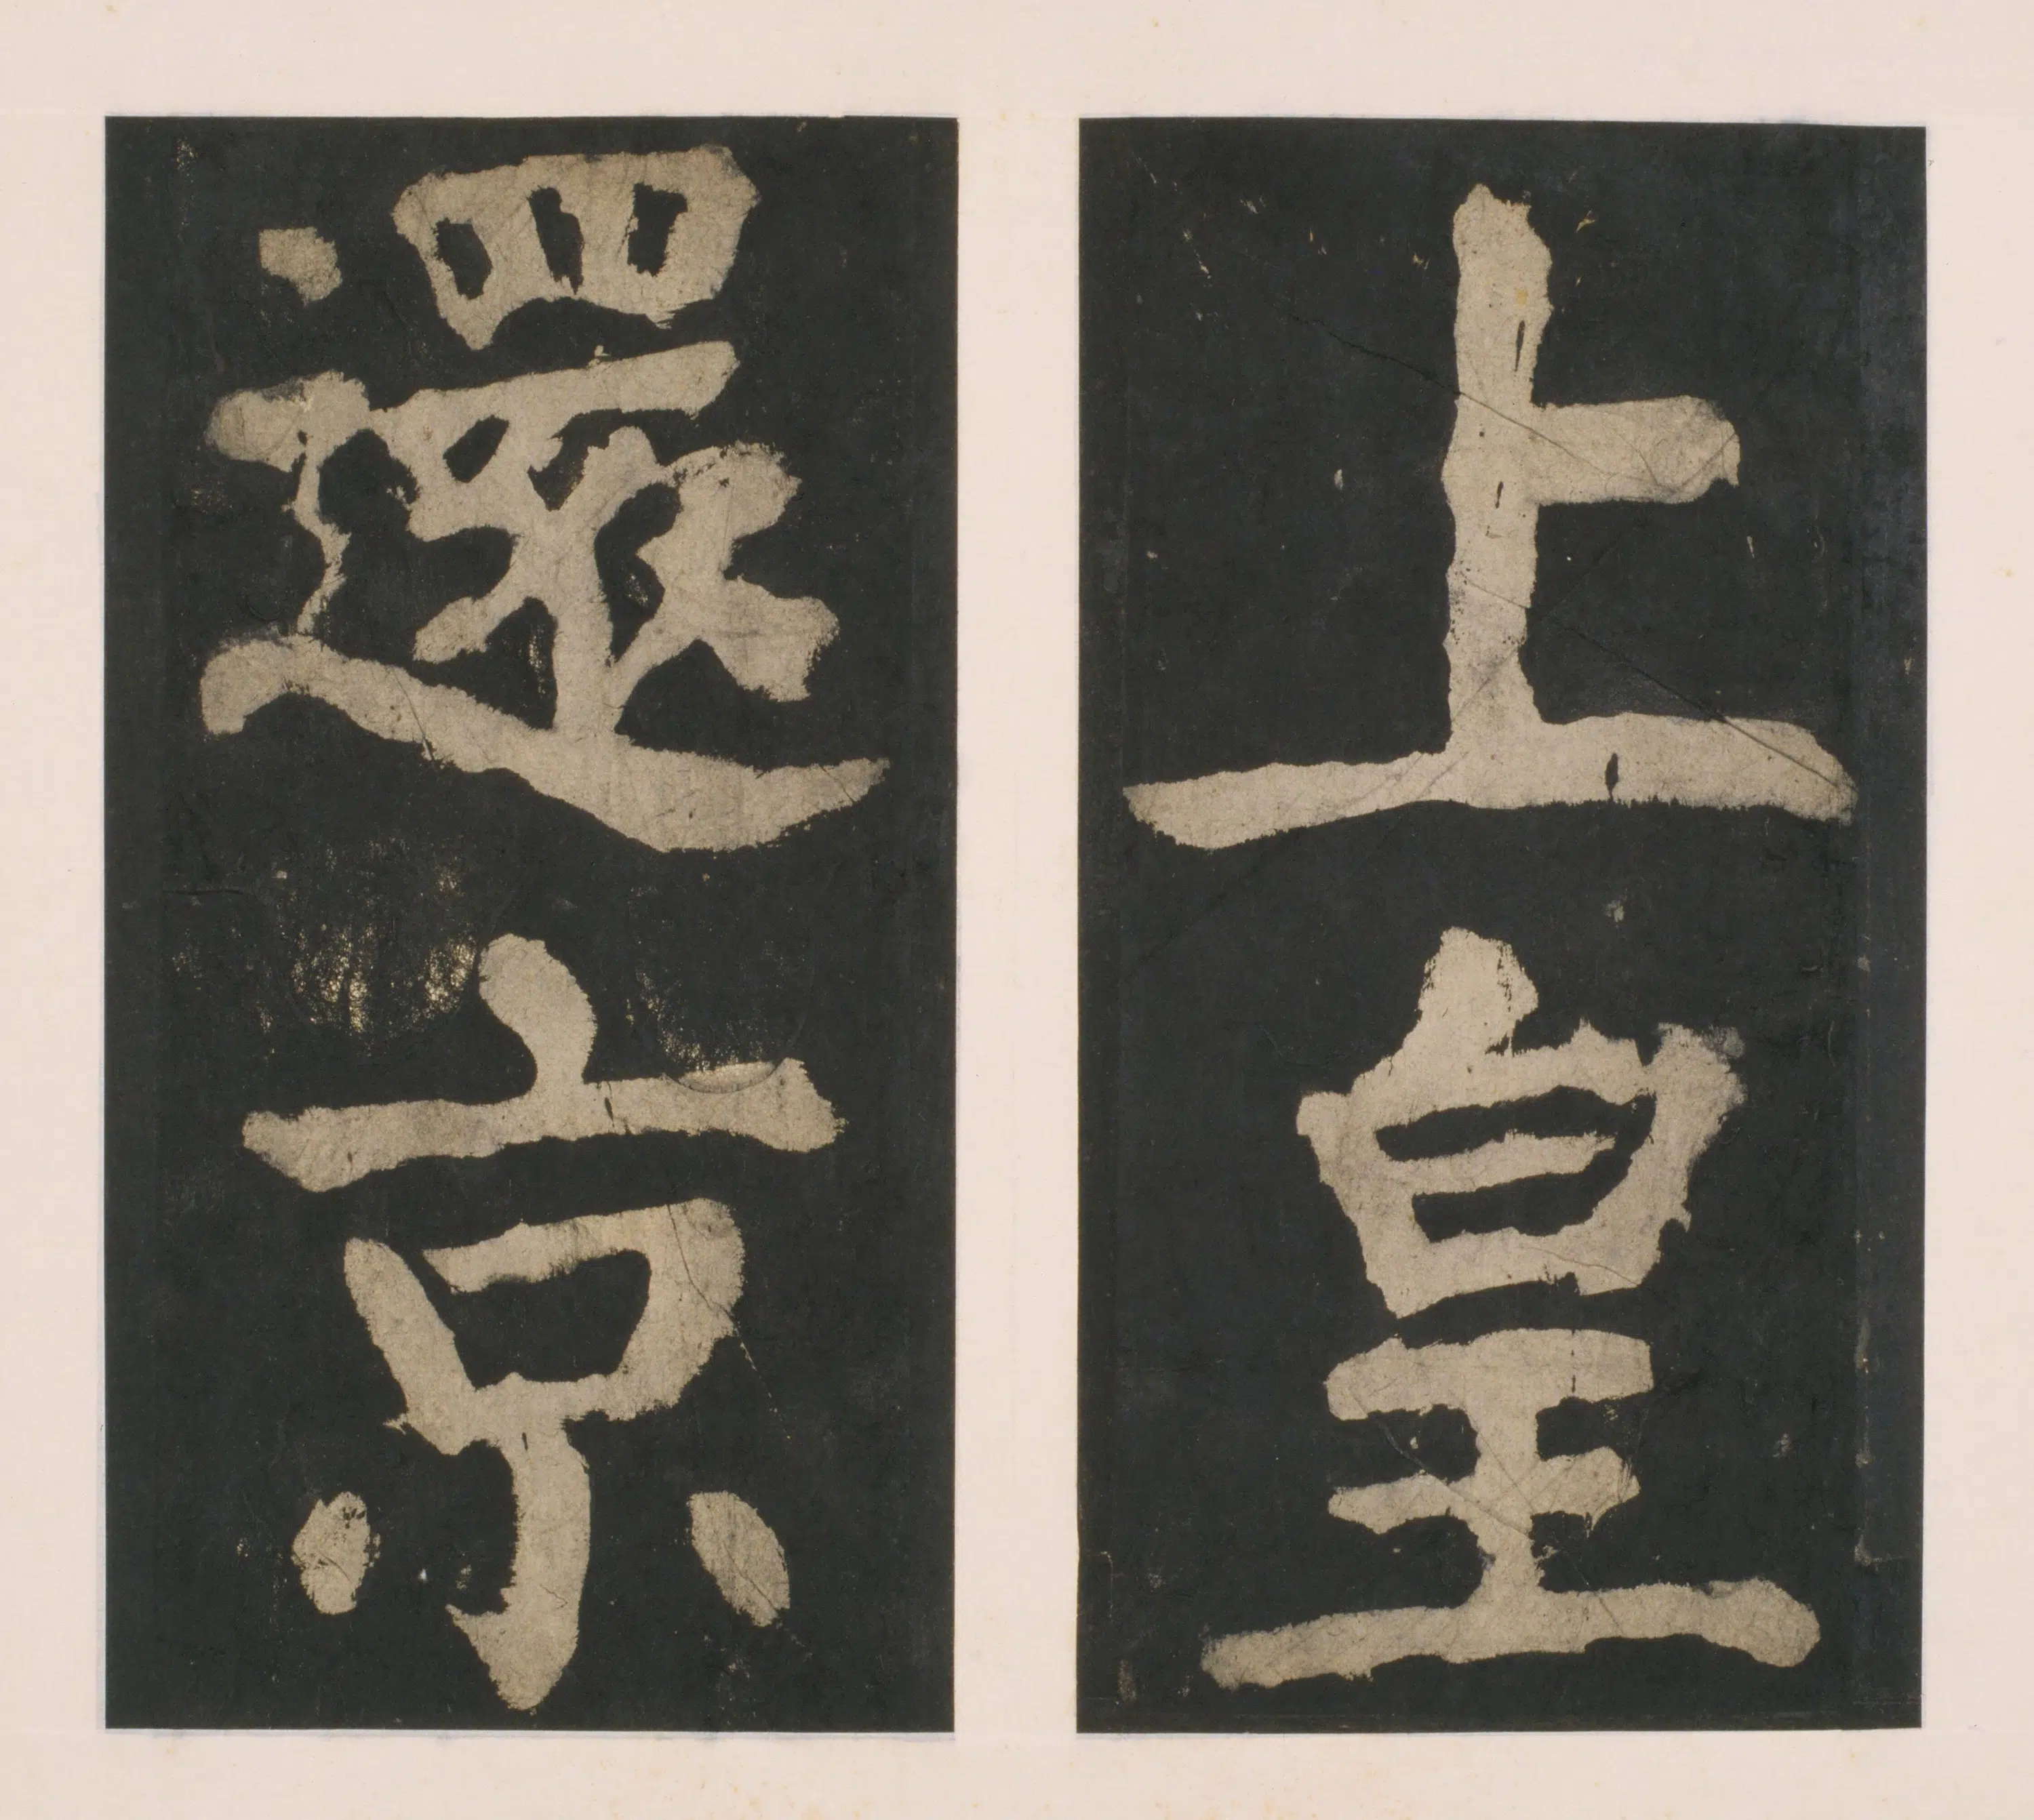 上皇
還京